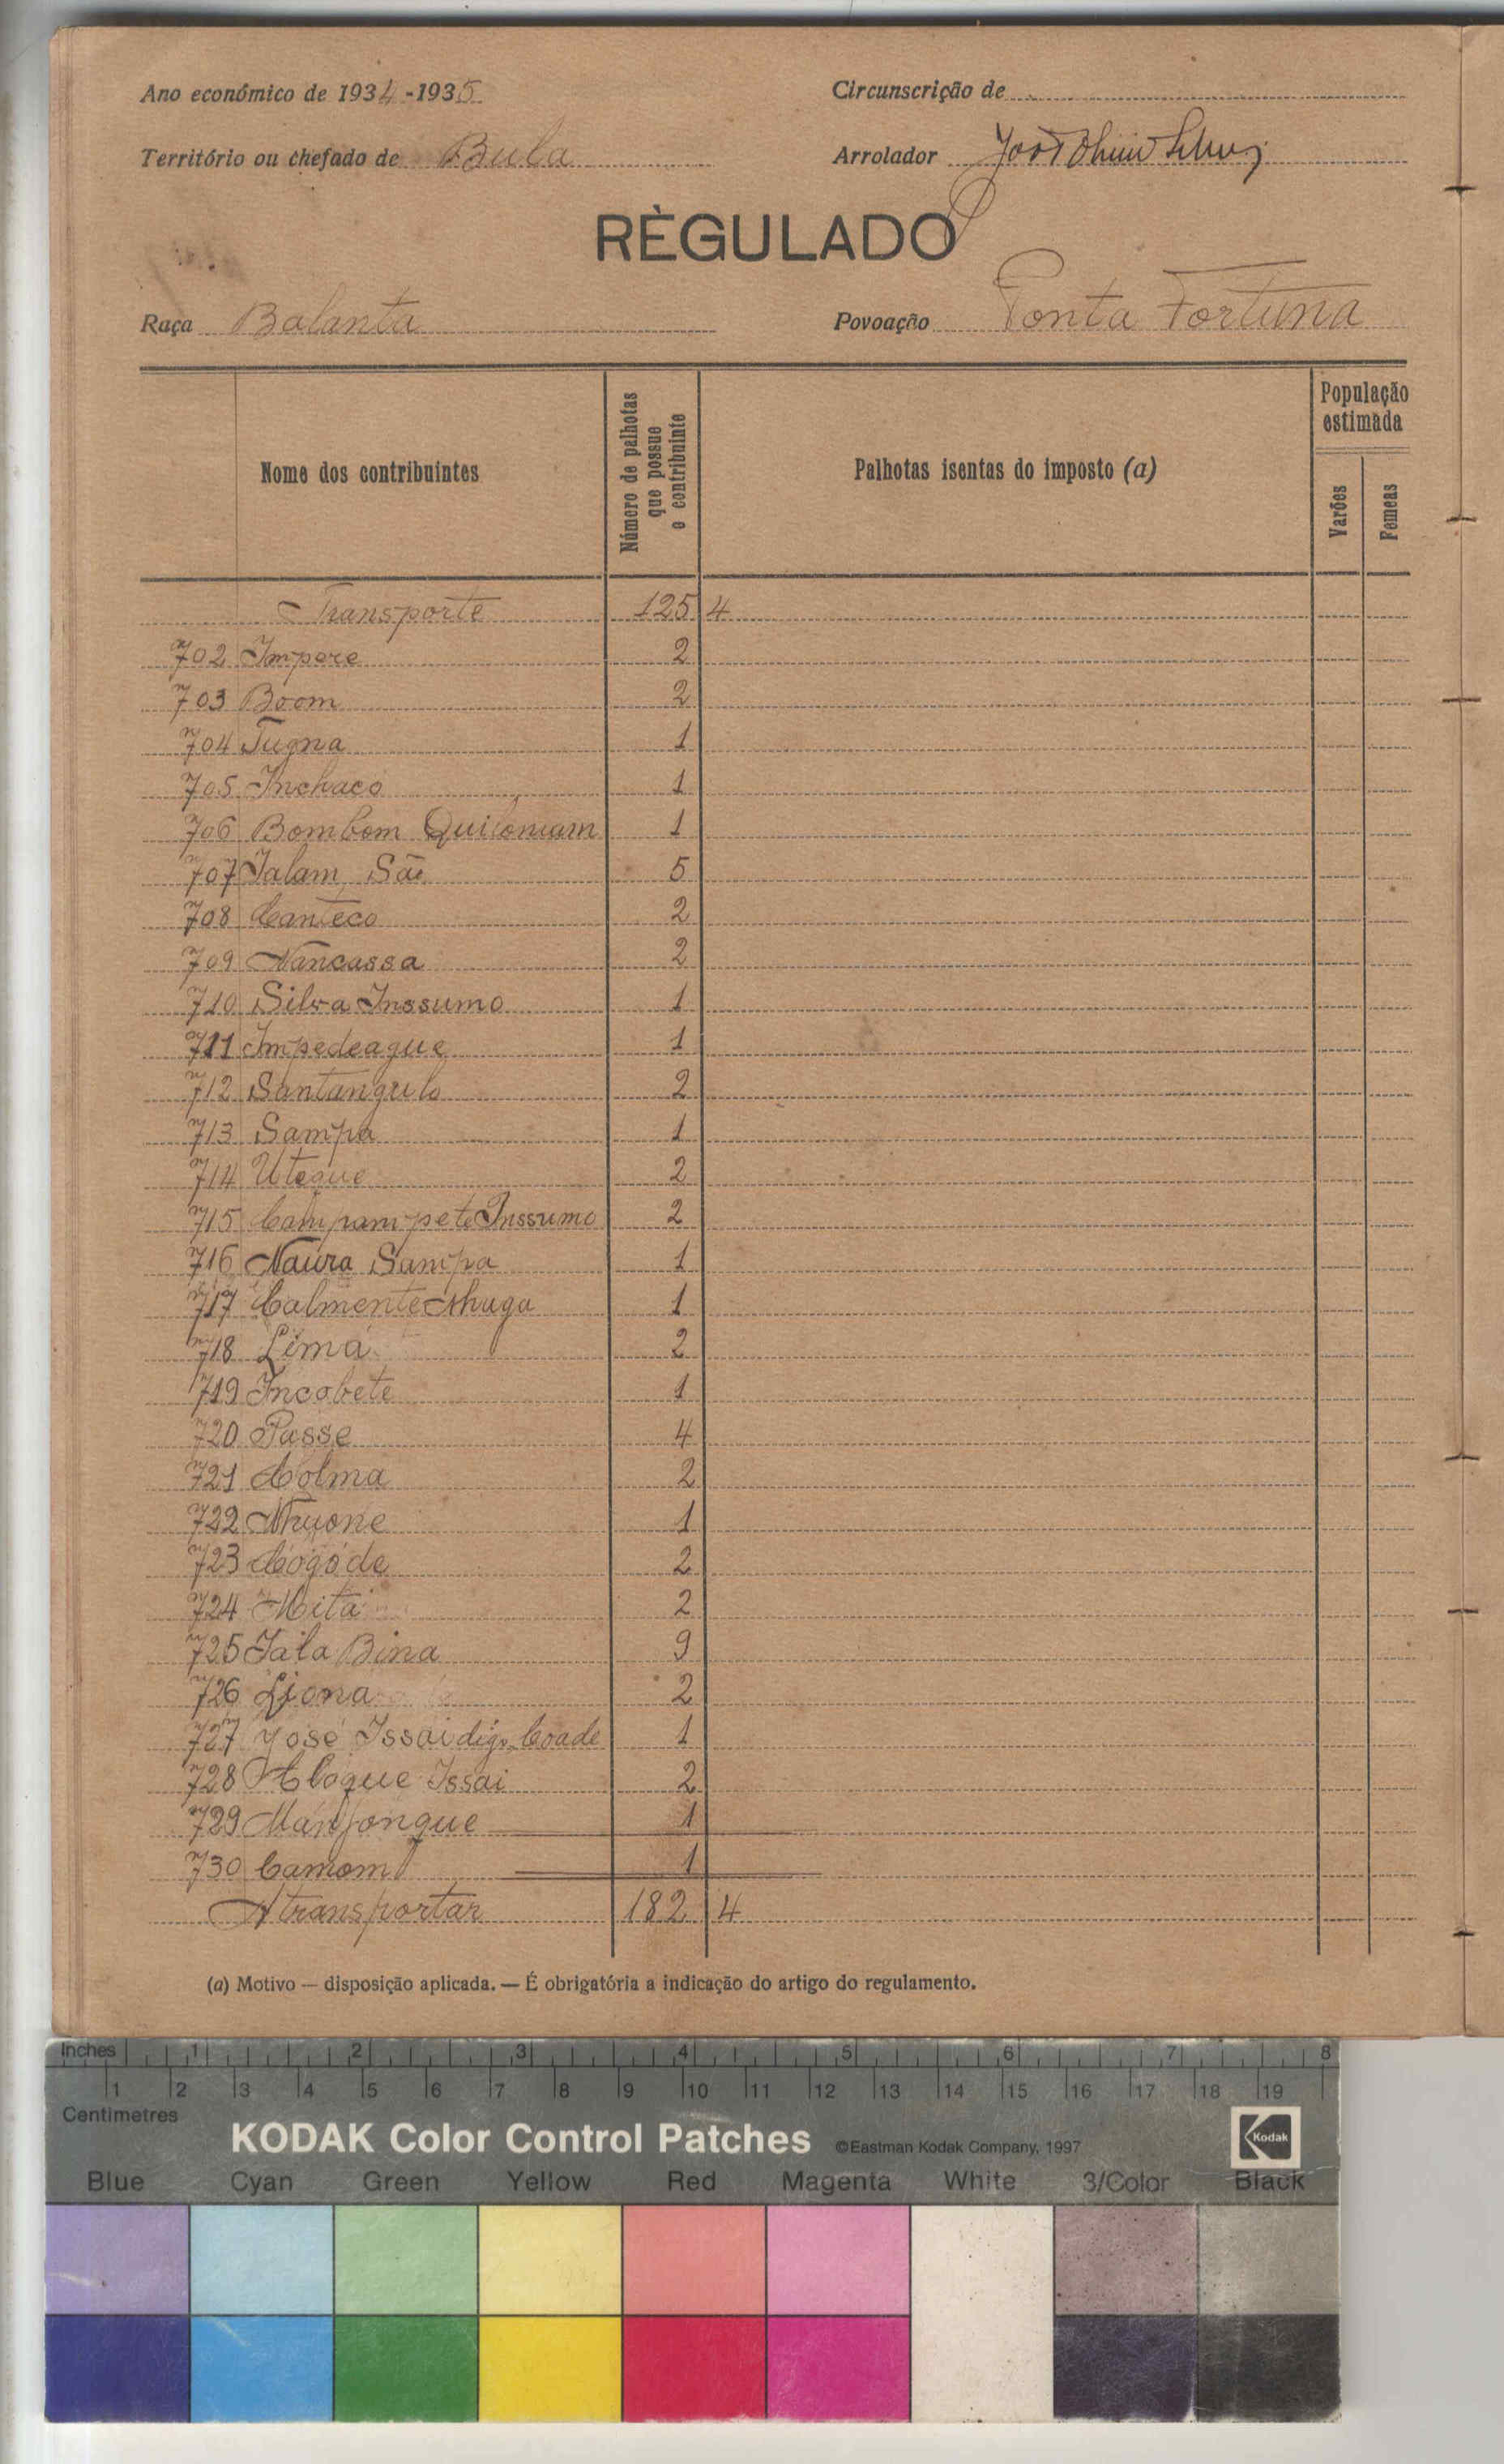 Ano económico de 1934-1935
Circunscrição de
Território ou chefado de Bula
Arrolador
RÈGULADO
Raça Balanta
Povoação Ponta Fortuna
Nome dos contribuintes
Número de palhotas que possue o contribuinte
Palhotas isentas do imposto (a)
População estimada
Varões
Femeas
Transporte 125 4
702 Impere 2
703 Boom 2
704 Tugna 1
705 Inchacó 1
706 Bombom 1
707 Jalam Sãe 5
708 Canteco 2
709 Nancassa 2
710 Silva Inssumo 1
711 Impedeague 1
712 Santangulo 2
713 Sampa 1
714 Uteque 2
715 Campampete Inssumo 2
716 Naura Sampa 1
717 Calmente 1
718 Limá 2
719 Incobete 1
720 Passe 4
721 Colma 2
722 Nhuone 1
723 Cógóde 2
724 Mita 2
725 Jala Bina 9
726 Liona 2
727 José Issai digo Coade 1
728 Cloque Issai 2
729 Manfongue 1
730 Camom 1
A transportar 182 4
(a) Motivo — disposição aplicada. — É obrigatória a indicação do artigo do regulamento.
Inches 1 2 3 4 5 6 7 8
1 2 3 4 5 6 7 8 9 10 11 12 13 14 15 16 17 18 19
Centimetres
KODAK Color Control Patches ©Eastman Kodak Company, 1997 Kodak
Blue Cyan Green Yellow Red Magenta White 3/Color Black